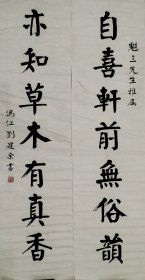 魁三先生雅属
自喜軒前無俗韻
亦知草木有真香
馮江劉遵余書